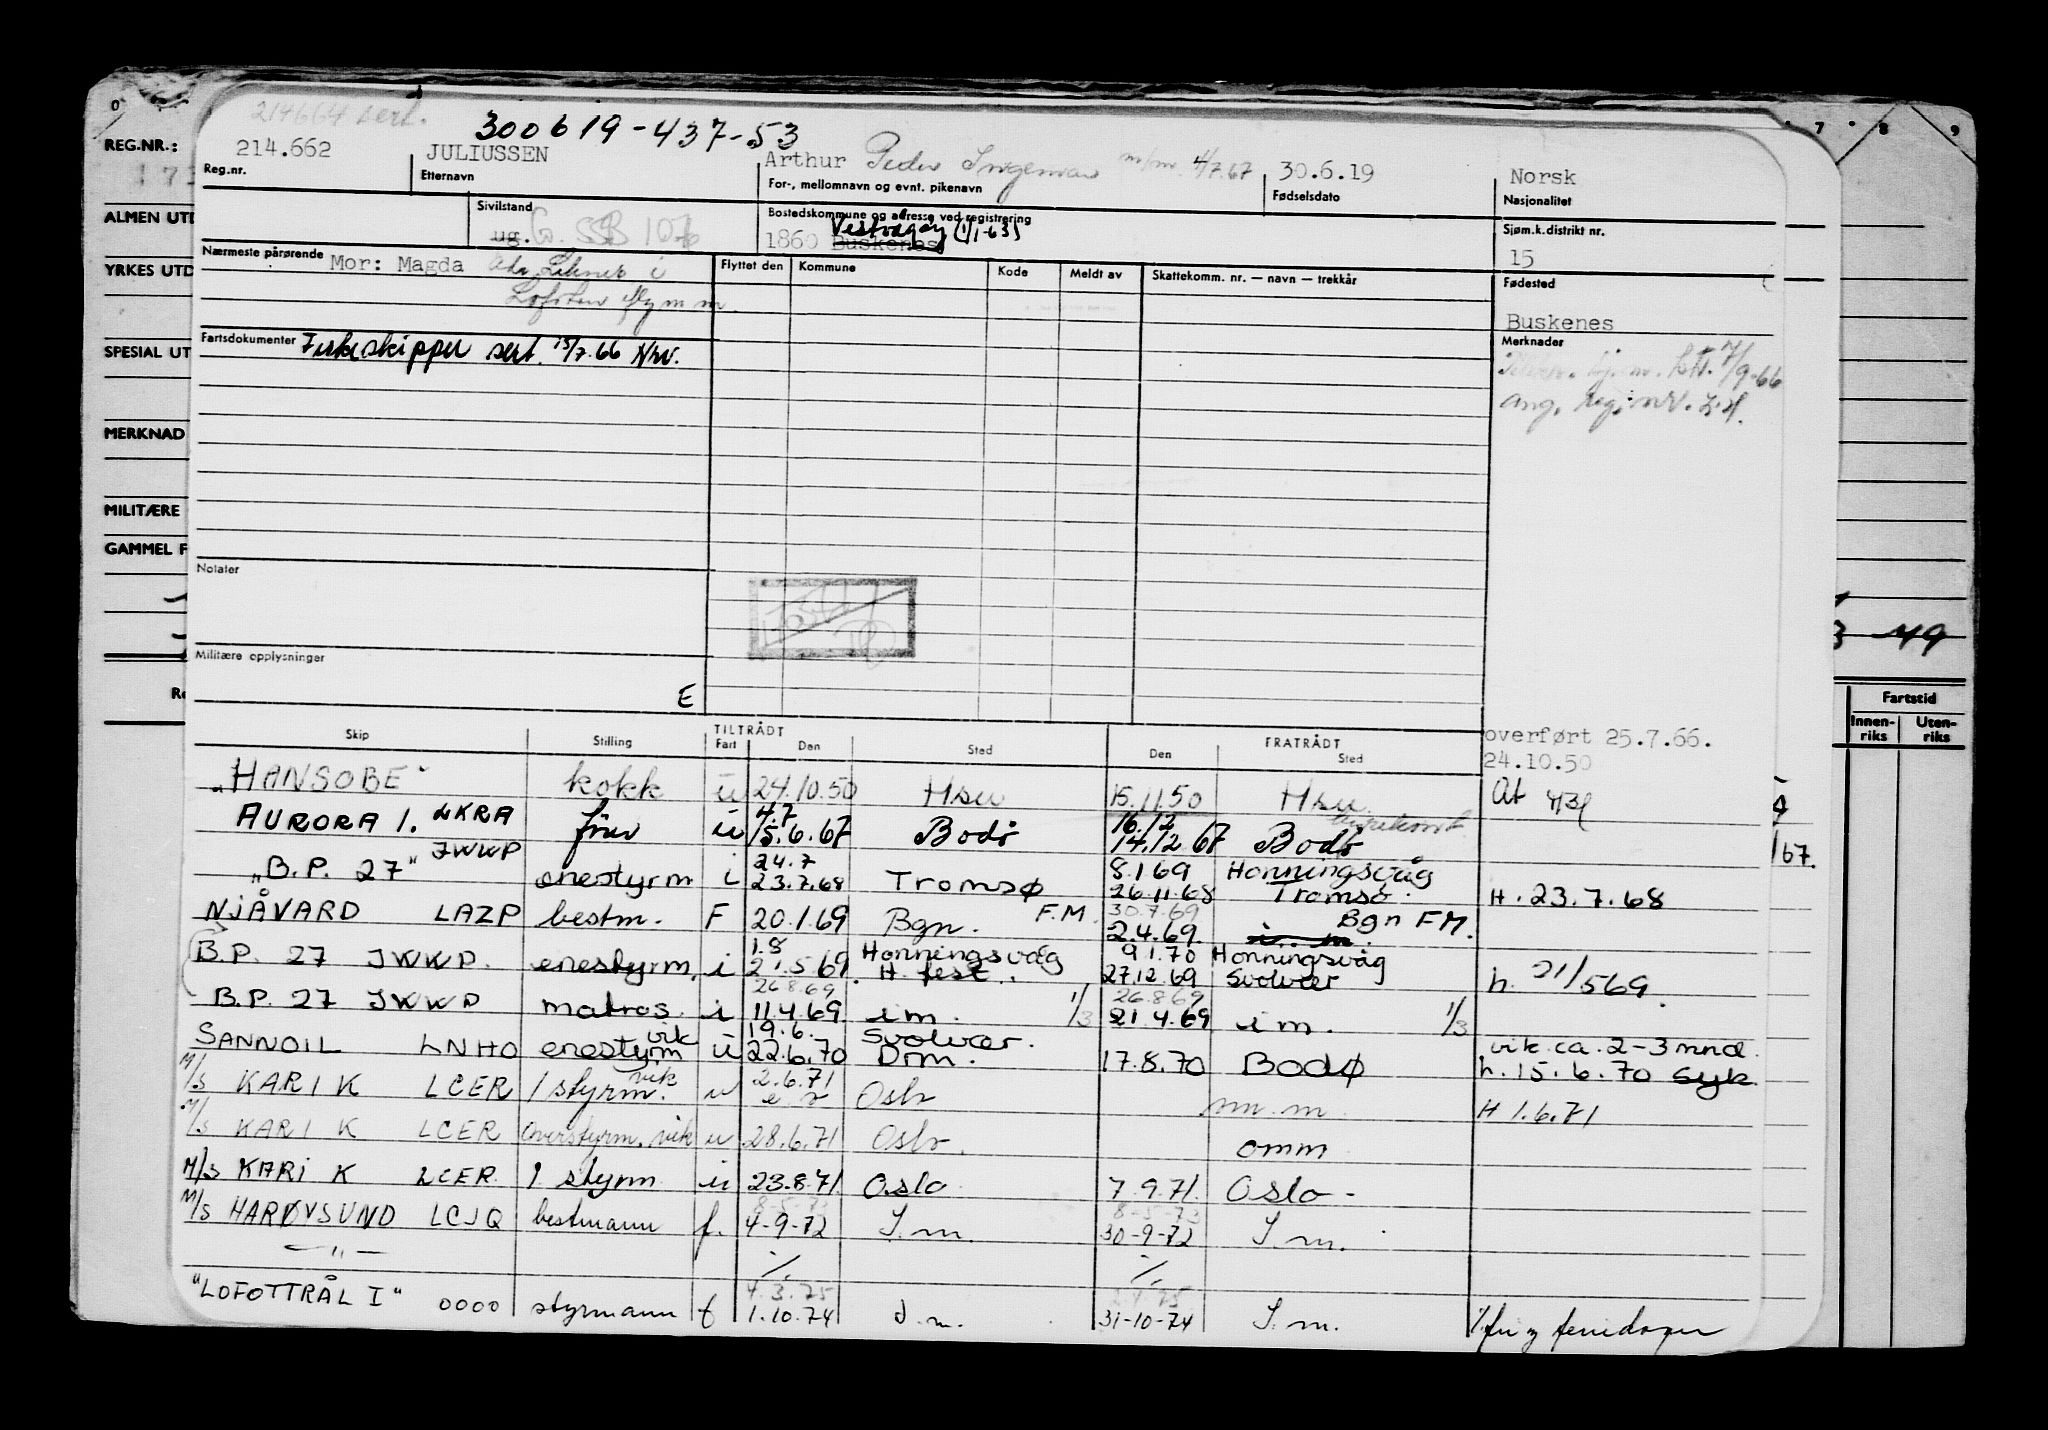 214664 sert.
300619-437-53
REG.NR.:
214.662 JULIUSSEN Arthur Peder Ingemar 4/7.67 30.6.19 Norsk
Reg.nr. Etternavn For-, mellomnavn og evnt. pikenavn Fødselsdato Nasjonalitet
ALMEN UTD
Sivilstand Bostedskommune og adresse ved registrering Sjøm.k.distrikt nr.
ug. G. SSB 107 1860 Buskenes Vestvågøy (1/1-63) 15
YRKES UTD
Nærmeste pårørende Mor: Magda Flyttet den Kommune Kode Meldt av Skattekomm. nr. — navn — trekkår Fødested
Buskenes
SPESIAL UT
Fartsdokumenter Fiskeskipper sert. 15/7.66 Nrv. Merknader
7/9-66
ang. reg. nr.
MERKNAD
MILITÆRE
GAMMEL F
Notater
Militære opplysninger
E
49
Fartstid
Innen-riks Uten-riks
TILTRÅDT FRATRÅDT overført 25.7.66.
Skip Stilling Fart Den Sted Den Sted 24.10.50
"HANSOBE" kokk u 24.10.50 Hsu 15.11.50 Hsu At
AURORA I. LKRA før u 4.7 15.6.67 Bodø 16.12 14.12.67 Bodø
"B.P. 27" JWWP enestyrm i 24.7 23.7.68 Tromsø 8.1 69 26.11.68 Honningsvåg Tromsø. H. 23.7.68
NJÅVARD LAZP bestm. F 20.1.69 Bgn. F.M. 30.7.69 2.4.69. i. m. Bgn FM.
B.P. 27 JWWP. enestyrm. i 1.8 21.5 69 Honningsvåg H. fest. 9.1.70 27.12.69 Honningsvåg Svolvær h. 21/5 69.
B.P. 27 JWWP matros. i 26.8.69 11.4.69. i m. 1/3 26.8.69 21.4.69 i m. 1/3
SANNOIL LNHO enestyrm vik u 19.6. 22.6.70 Svolvær. Drm. 17.8.70 Bodø vik ca. 2-3 mnd. h. 15.6.70 syk.
M/S KARI K LCER 1 styrm. vik u 2.6.71 Oslo m.m H 1.6.71
M/S KARI K LCER overstyrm. vik u 28.6.71 Oslo. omm
M/S KARI K LCER 1 styrm u 23.8.71. Oslo 7.9.71. Oslo -
M/S HARØYSUND LCJQ bestmann f. 8-5-73 4-9-72 I.m. 8-5-73 30-9-72 I.m.
— " — /. /.
"LOFOTTRÅL I" 0000 styrmann f 4.3.75 1.10.74 I.m. 31-10-74 I.m. fri og feriedager